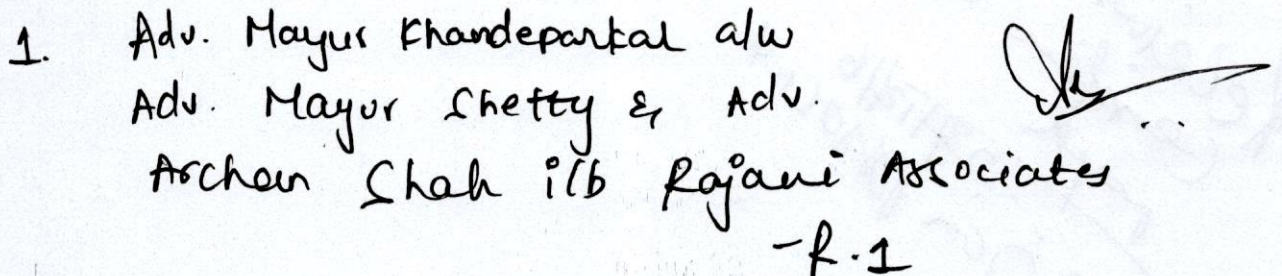 1. Adv. Mayur Khandeparkar a/w
Adv. Mayur Shetty & Adv.
Archan Shah i/b Rajani Associates
-R.1